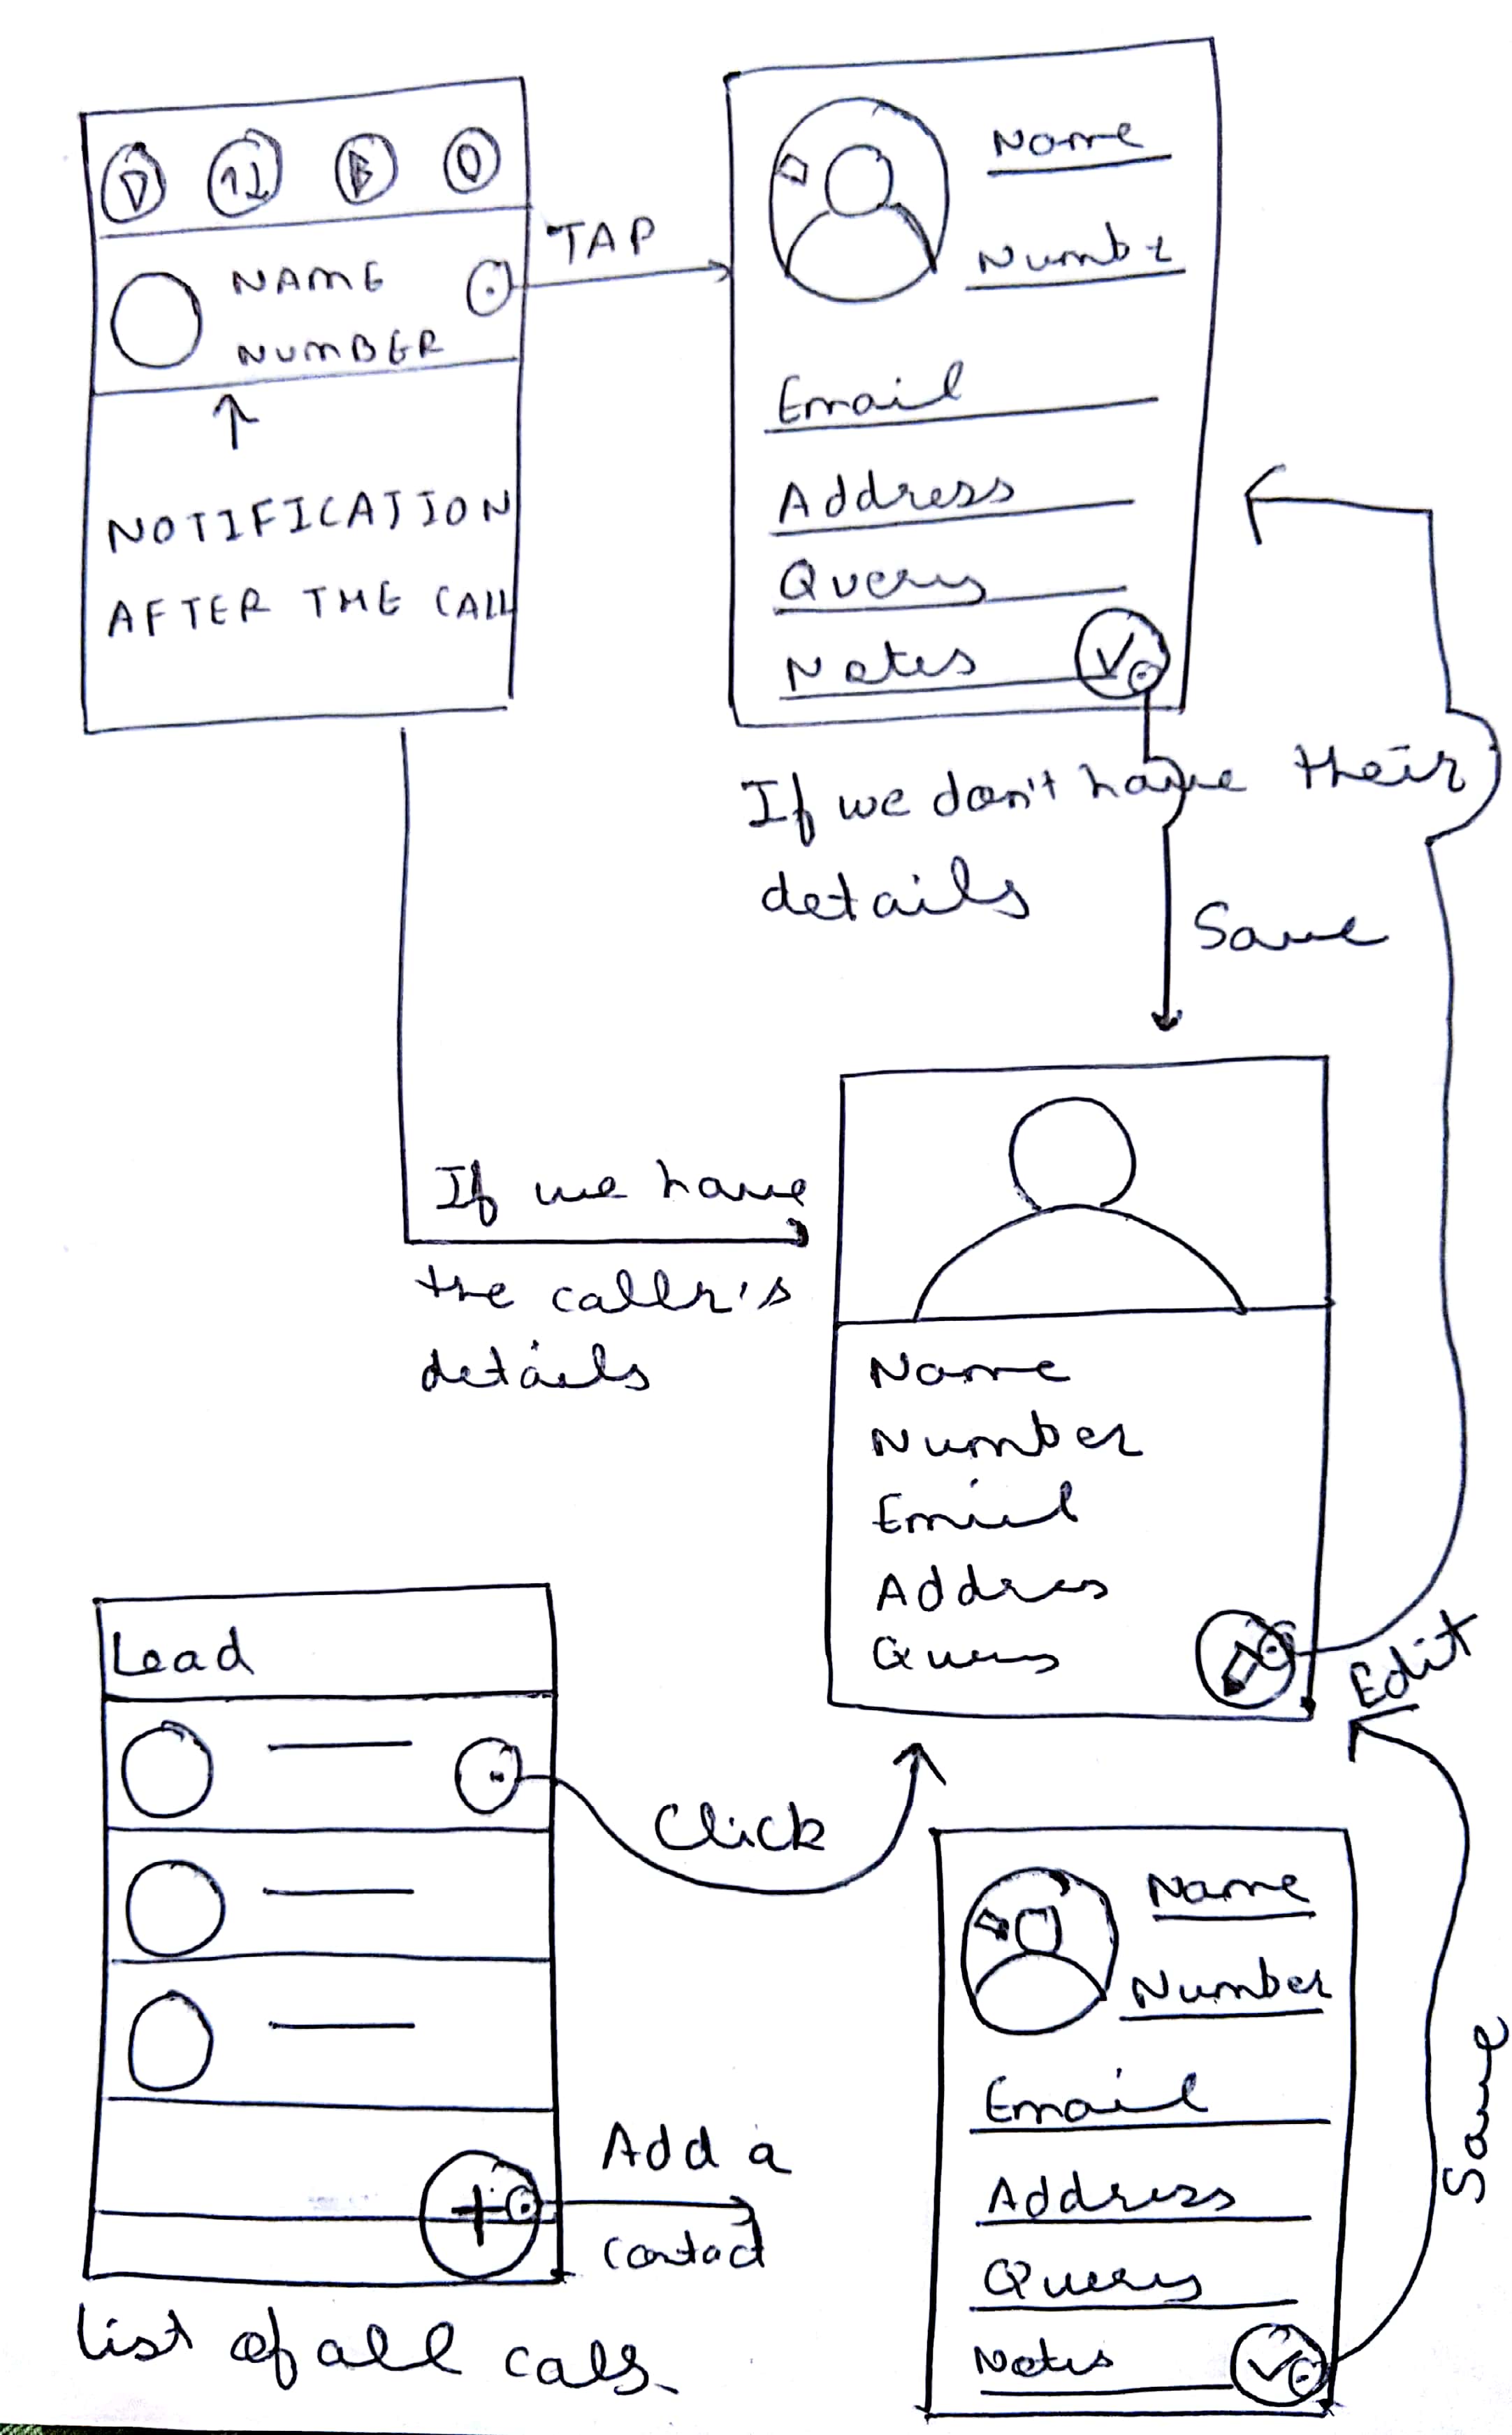 NAME
NUMBER
NOTIFICATION
AFTER THE CALL
TAP
Name
Number
Email
Address
Query
Notes
If we don't have their
details
Save
If we have
the callr's
details
Name
Number
Email
Addres
Query
Edit
Lead
Click
Add a
Contact
List of all calls
Name
Number
Email
Address
Query
Notes
Save